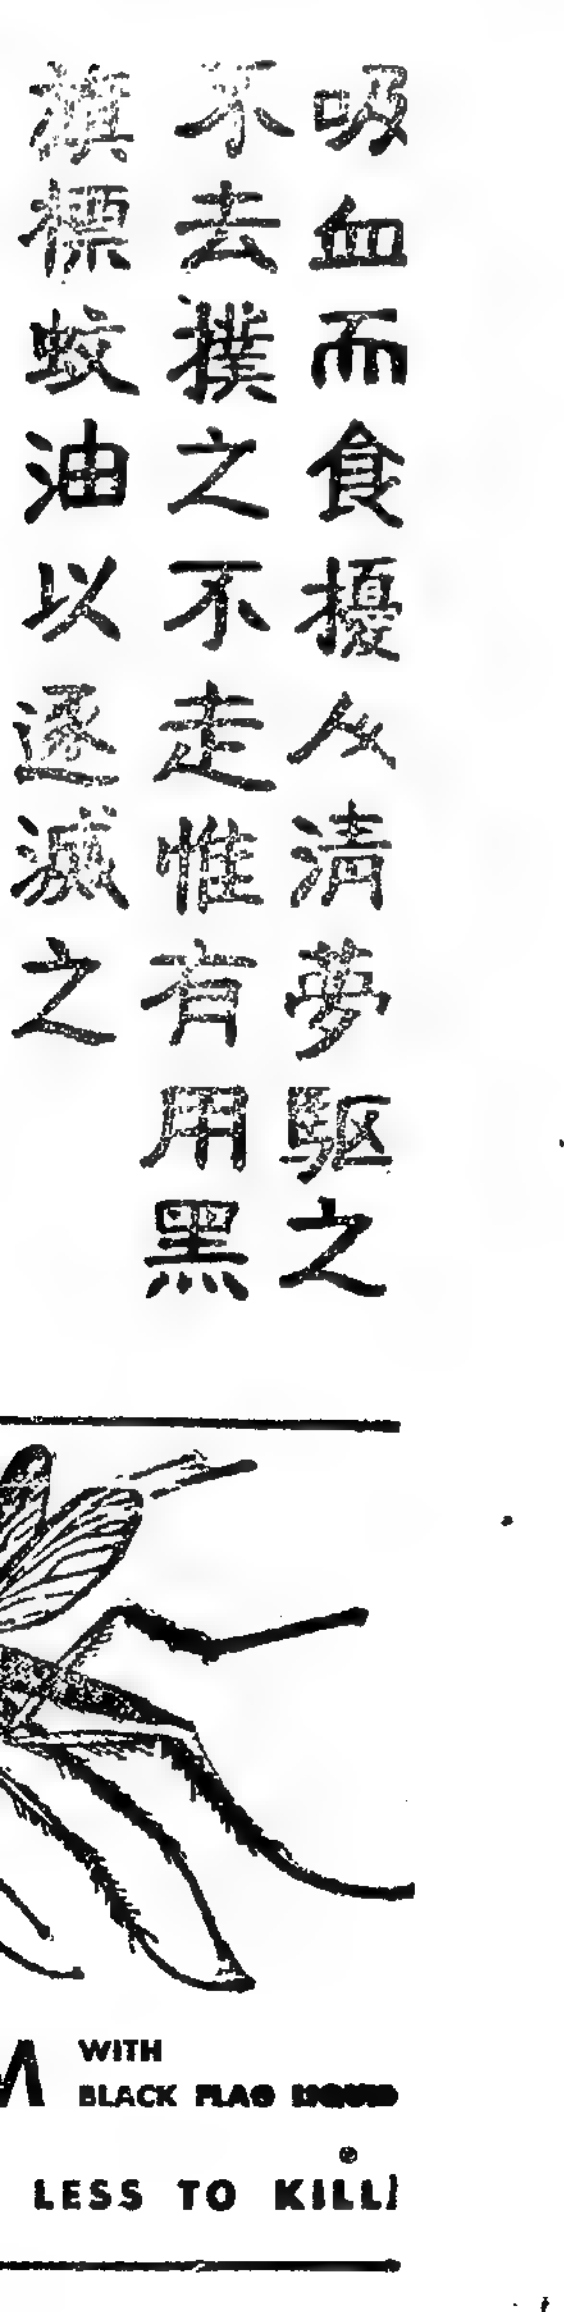 吸血而食擾人清夢驅之
不去撲之不走惟有用黑
旗標蚊油以逐滅之
WITH
BLACK FLAG LIQUID
LESS TO KILL